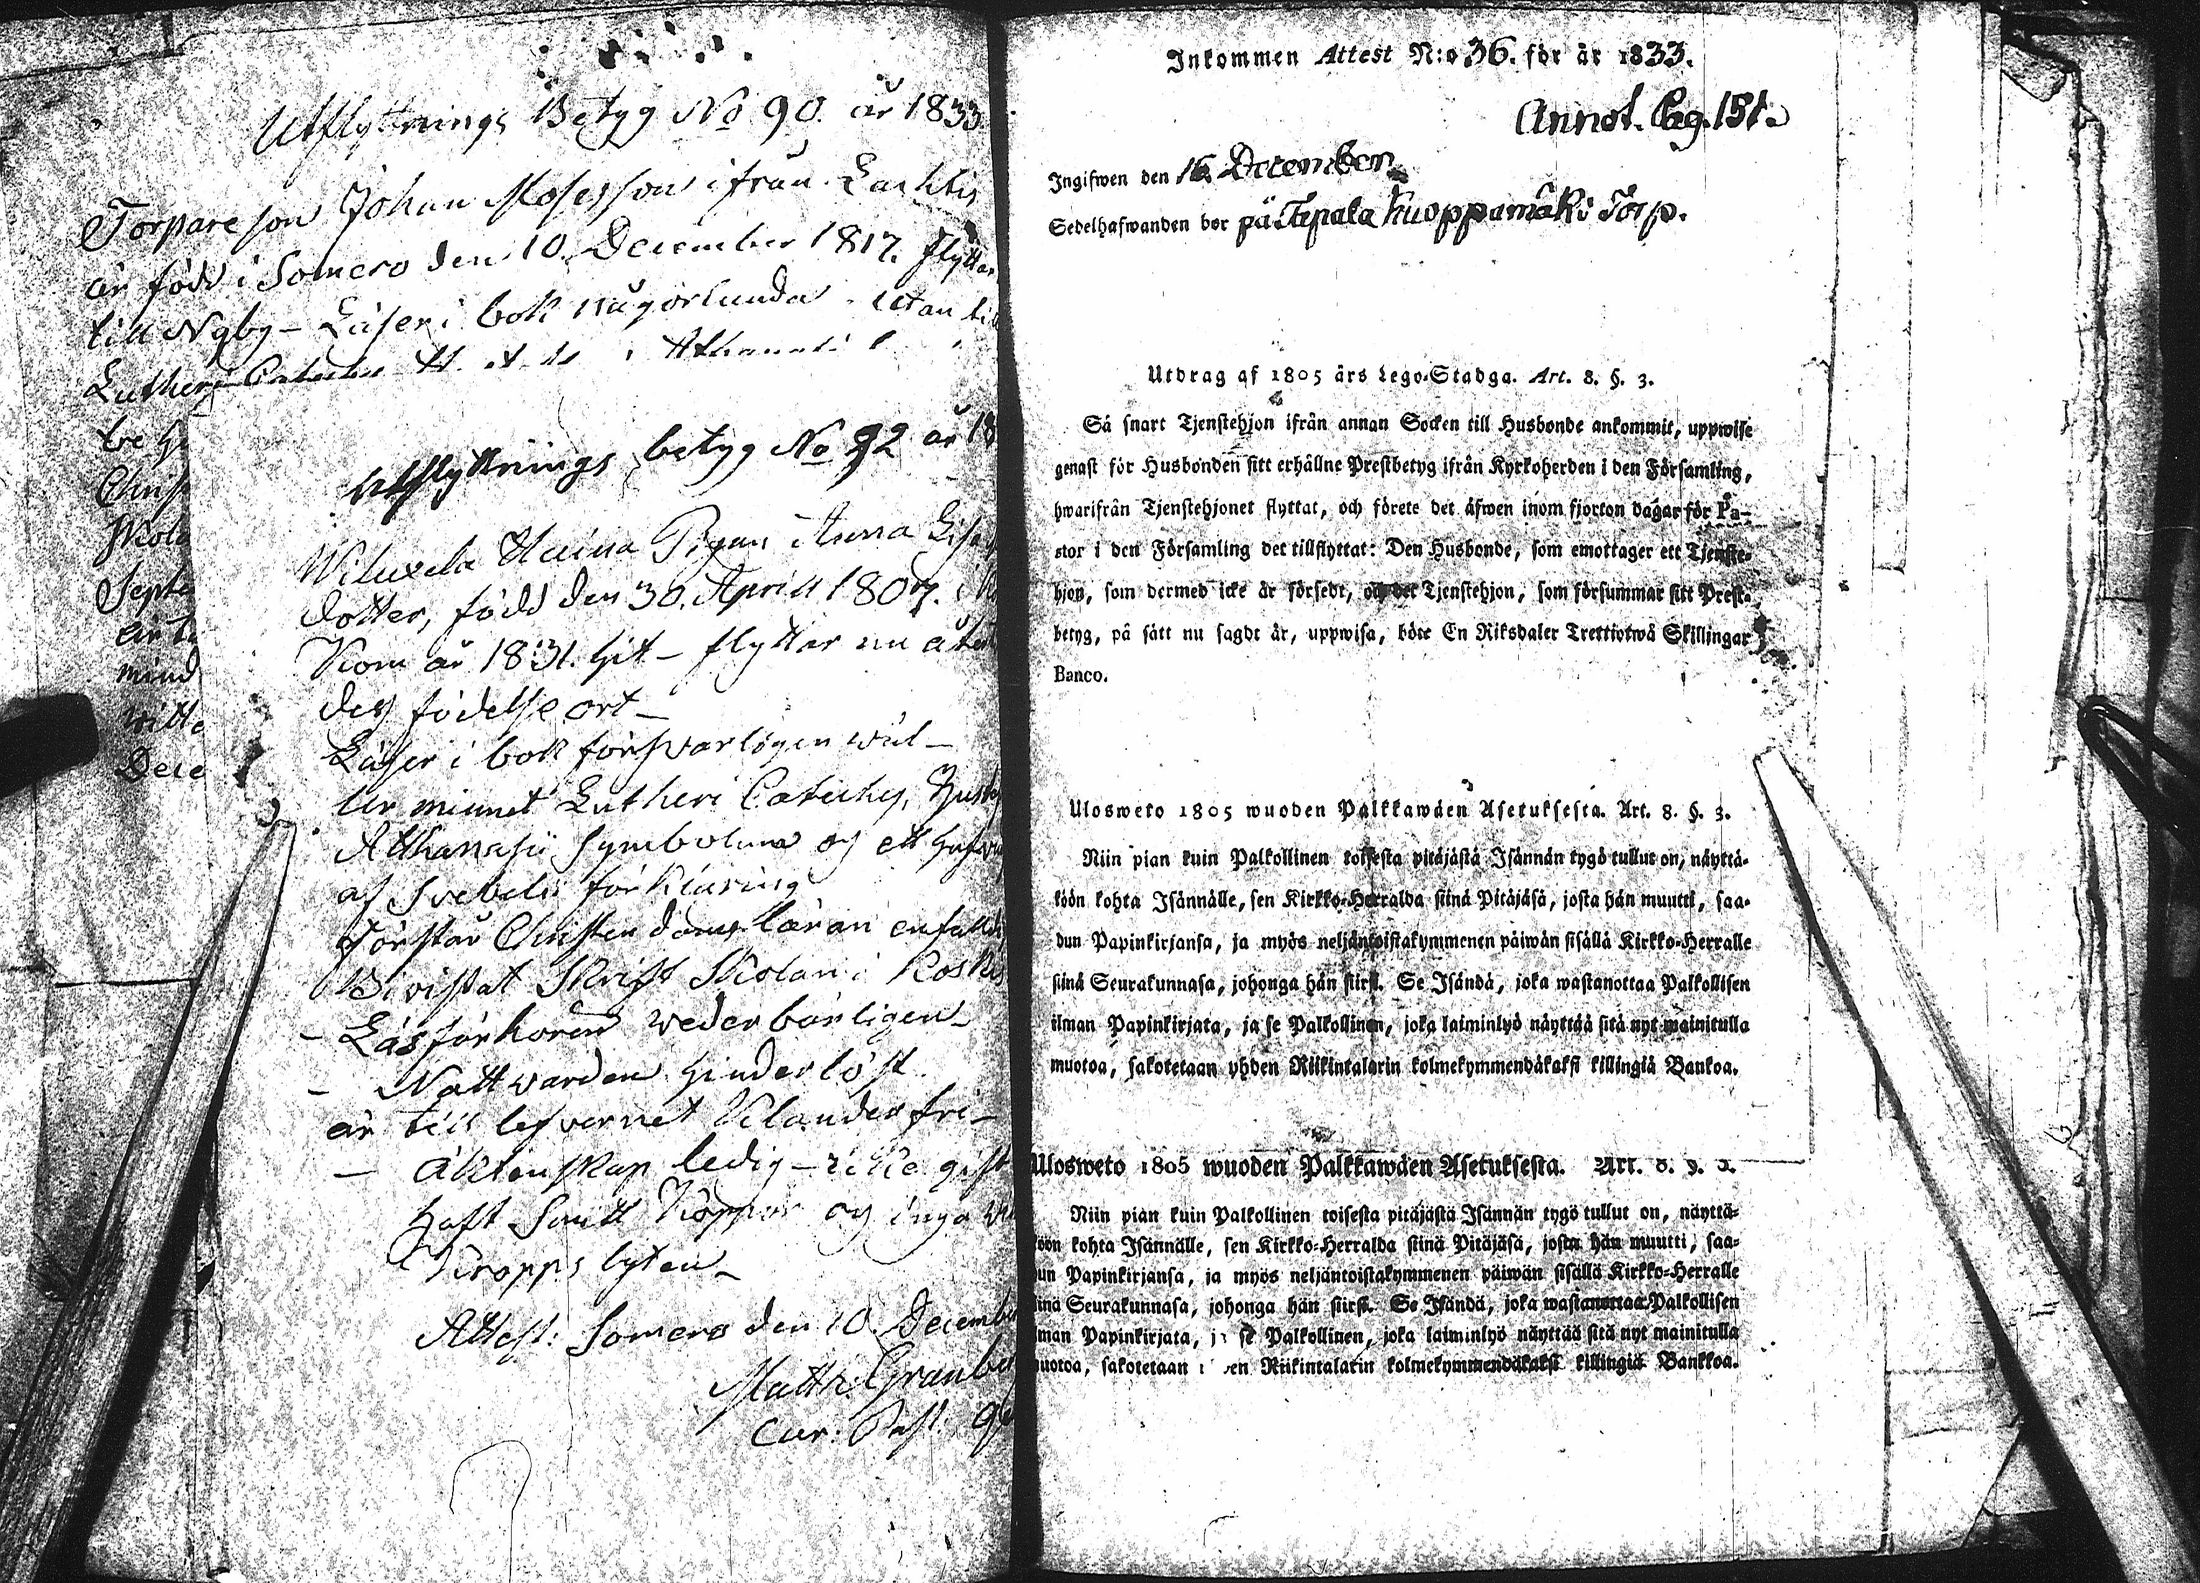 Utflyttnings Betyg No 90. år 1833
Torpare son Johan Mosesson ifrån Lachtis
är född i Somero den 10. December 1817. flyttar
till Nyby - Läser i bok någorlunda. Utan till
Lutheri
Christ
Septe
är ti
mind
witte
Dece
Utflyttnings betyg No 92 år 18
Pigan Anna Lisa
dotter, född den 30. April 1807. i
Kom år 1831. hit - flyttar nu åter
des födelse ort -
Läser i bok försvarligen wäl -
ur minnet Lutheri Cateches, Hustaf
Athanasii Symbolum og ett hufwu
af Svebelii förklaring
Förstår Christendoms läran enfaldi
Bivistat Skrift Skolan i Koskis
- Läsförhören wederbörligen -
- Nattvarden hinderlöst.
är till lefvernet klanderfri -
- Äktenskap ledig - icke gift
Haft Smitt Koppor og inga
kropps lyten -
Attest: Somero den 10. Decemb
Matth: Granbe
Cur: Past:
Inkommen Attest N:o 36. för år 1833.
Annot. Pag. 151.
Ingifwen den 16. December.
Sedelhafwanden bor på Terpala Kuoppamäki Torp.
Utdrag af 1805 års Lego-Stadga. Art. 8. §. 3.
Så snart Tjenstehjon ifrån annan Socken till Husbonde ankommit, uppwise
genast för Husbonden sitt erhållne Prestbetyg ifrån Kyrkoherden i den Församling,
hwarifrån Tjenstehjonet flyttat, och förete det äfwen inom fjorton dagar för Pa-
stor i den Församling det tillflyttat: Den Husbonde, som emottager ett Tjenste-
hjon, som dermed icke är försedt, och det Tjenstehjon, som försummar sitt Prest-
betyg, på sätt nu sagdt är, uppwisa, böte En Riksdaler Trettiotwå Skillingar
Banco.
Ulosweto 1805 wuoden Palkkawäen Asetuksesta. Art. 8. §. 3.
Niin pian kuin Palkollinen toisesta pitäjästä Isännän tygö tullut on, näyttä-
köön kohta Isännälle, sen Kirkko-Herralda siinä Pitäjäsä, josta hän muutti, saa-
dun Papinkirjansa, ja myös neljäntoistakymmenen päiwän sisällä Kirkko-Herralle
siinä Seurakunnasa, johonga hän siirsi. Se Isändä, joka wastanottaa Palkollisen
ilman Papinkirjata, ja se Palkollinen, joka laiminlyö näyttää sitä nyt mainitulla
muotoa, sakotetaan yhden Riikintalarin kolmekymmendäkaksi killingiä Bankoa.
Ulosweto 1805 wuoden Palkkawäen Asetuksesta. Art. 8. §. 3.
Niin pian kuin Palkollinen toisesta pitäjästä Isännän tygö tullut on, näyttä-
öön kohta Isännälle, sen Kirkko-Herralda siinä Pitäjäsä, josta hän muutti, saa-
un Papinkirjansa, ja myös neljäntoistakymmenen päiwän sisällä Kirkko-Herralle
inä Seurakunnasa, johonga hän siirsi. Se Isändä, joka wastanottaa Palkollisen
man Papinkirjata, ja se Palkollinen, joka laiminlyö näyttää sitä nyt mainitulla
uotoa, sakotetaan en Riikintalarin kolmekymmendäkaksi killingiä Bankkoa.